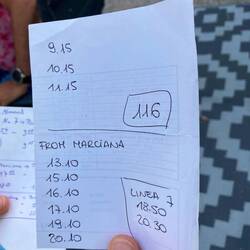 9.15
10.15
11.15
116
FROM MARCIANA
13.10
15.10
16.10
17.10
19.10
20.10
LINEA 7
18.50
20.30